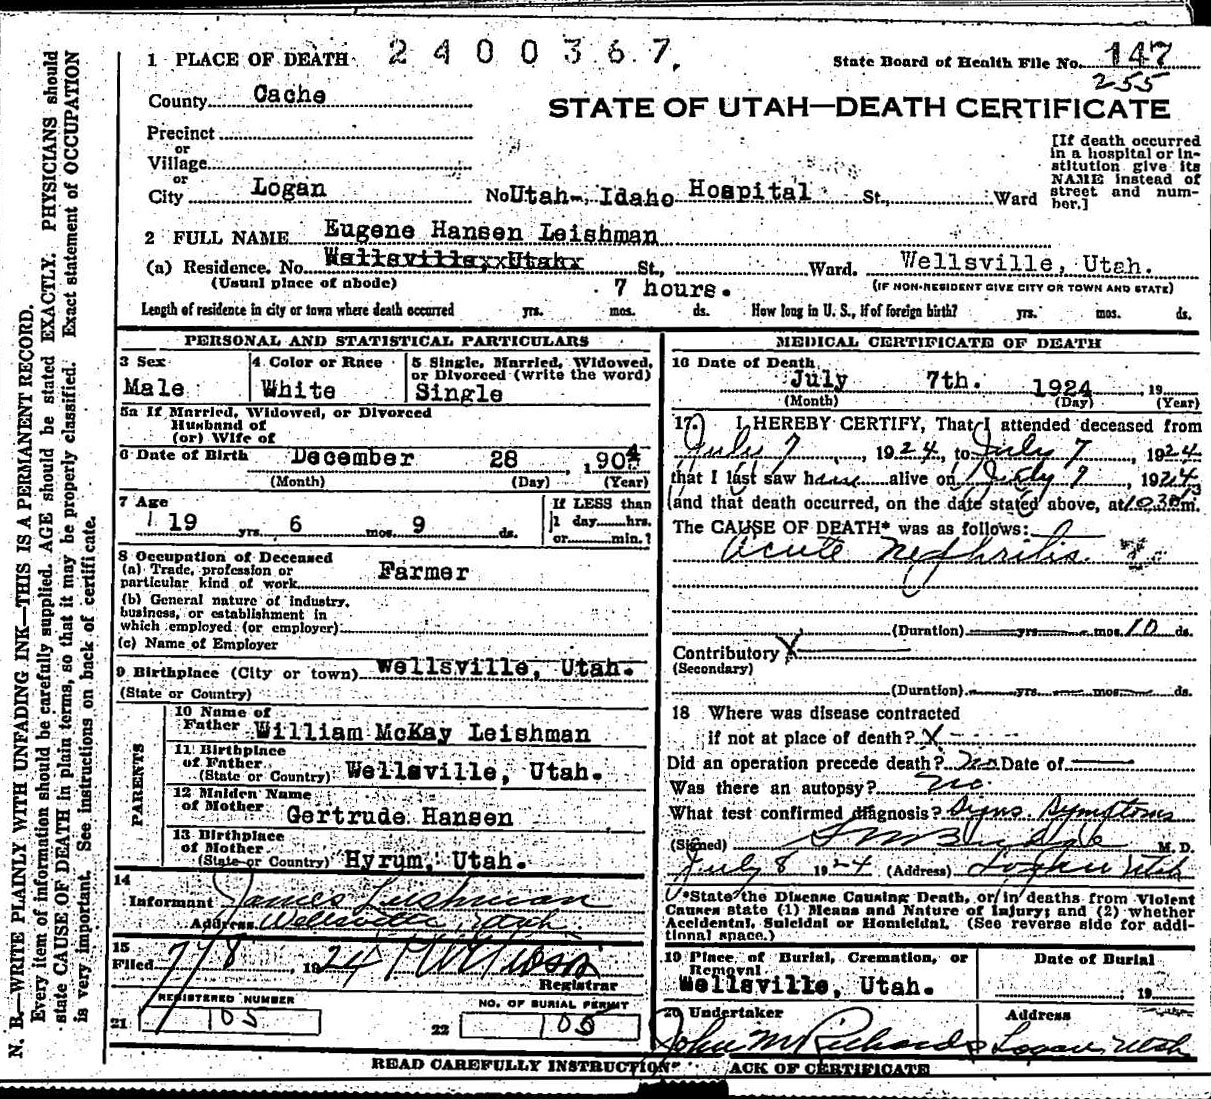 1 PLACE OF DEATH 2400367
State Board of Health File No. 147
255
County Cache
STATE OF UTAH—DEATH CERTIFICATE
Precinct
or
Village
or
City Logan No. Utah-, Idaho Hospital St., Ward
[If death occurred
in a hospital or in-
stitution give its
NAME instead of
street and num-
ber.]
2 FULL NAME Eugene Hansen Leishman
(a) Residence. No. Wellsville,xxUtahx St., Ward. Wellsville, Utah.
(Usual place of abode) 7 hours. (IF NON-RESIDENT GIVE CITY OR TOWN AND STATE)
Length of residence in city or town where death occurred yrs. mos. ds. How long in U. S., if of foreign birth? yrs. mos. ds.
PERSONAL AND STATISTICAL PARTICULARS
3 Sex 4 Color or Race 5 Single, Married, Widowed,
or Divorced (write the word)
Male White Single
5a If Married, Widowed, or Divorced
Husband of
(or) Wife of
6 Date of Birth December 28 1904
(Month) (Day) (Year)
7 Age If LESS than
19 yrs. 6 mos. 9 ds. 1 day......hrs.
or......min.?
8 Occupation of Deceased
(a) Trade, profession or
particular kind of work Farmer
(b) General nature of industry,
business, or establishment in
which employed (or employer)
(c) Name of Employer
9 Birthplace (City or town) Wellsville, Utah.
(State or Country)
PARENTS
10 Name of
Father William McKay Leishman
11 Birthplace
of Father
(State or Country) Wellsville, Utah.
12 Maiden Name
of Mother Gertrude Hansen
13 Birthplace
of Mother
(State or Country) Hyrum, Utah.
14
Informant James Leishman
Address Wellsville Utah
15
Filed 7/8, 1924
Registrar
REGISTERED NUMBER NO. OF BURIAL PERMIT
21 105 22 105
MEDICAL CERTIFICATE OF DEATH
16 Date of Death July 7th. 1924, 19
(Month) (Day) (Year)
17. I HEREBY CERTIFY, That I attended deceased from
July 7, 1924, to July 7, 1924
that I last saw h alive on July 7, 1924
and that death occurred, on the date stated above, at 10:30 m.
The CAUSE OF DEATH* was as follows:
Acute Nephritis.
(Duration) yrs. mos. 10 ds.
Contributory X
(Secondary)
(Duration) yrs. mos. ds.
18 Where was disease contracted
if not at place of death? X
Did an operation precede death? No Date of
Was there an autopsy? No
What test confirmed diagnosis? Symptoms
(Signed) M. D.
July 8 1924 (Address) Logan Utah
*State the Disease Causing Death, or in deaths from Violent
Causes state (1) Means and Nature of Injury; and (2) whether
Accidental, Suicidal or Homicidal. (See reverse side for addi-
tional space.)
19 Place of Burial, Cremation, or
Removal Date of Burial
Wellsville, Utah. , 19
20 Undertaker Address
John M Richards Logan, Utah
READ CAREFULLY INSTRUCTION ACK OF CERTIFICATE
N. B.—WRITE PLAINLY WITH UNFADING INK—THIS IS A PERMANENT RECORD.
Every item of information should be carefully supplied. AGE should be stated EXACTLY. PHYSICIANS should
state CAUSE OF DEATH in plain terms, so that it may be properly classified. Exact statement of OCCUPATION
is very important. See instructions on back of certificate.